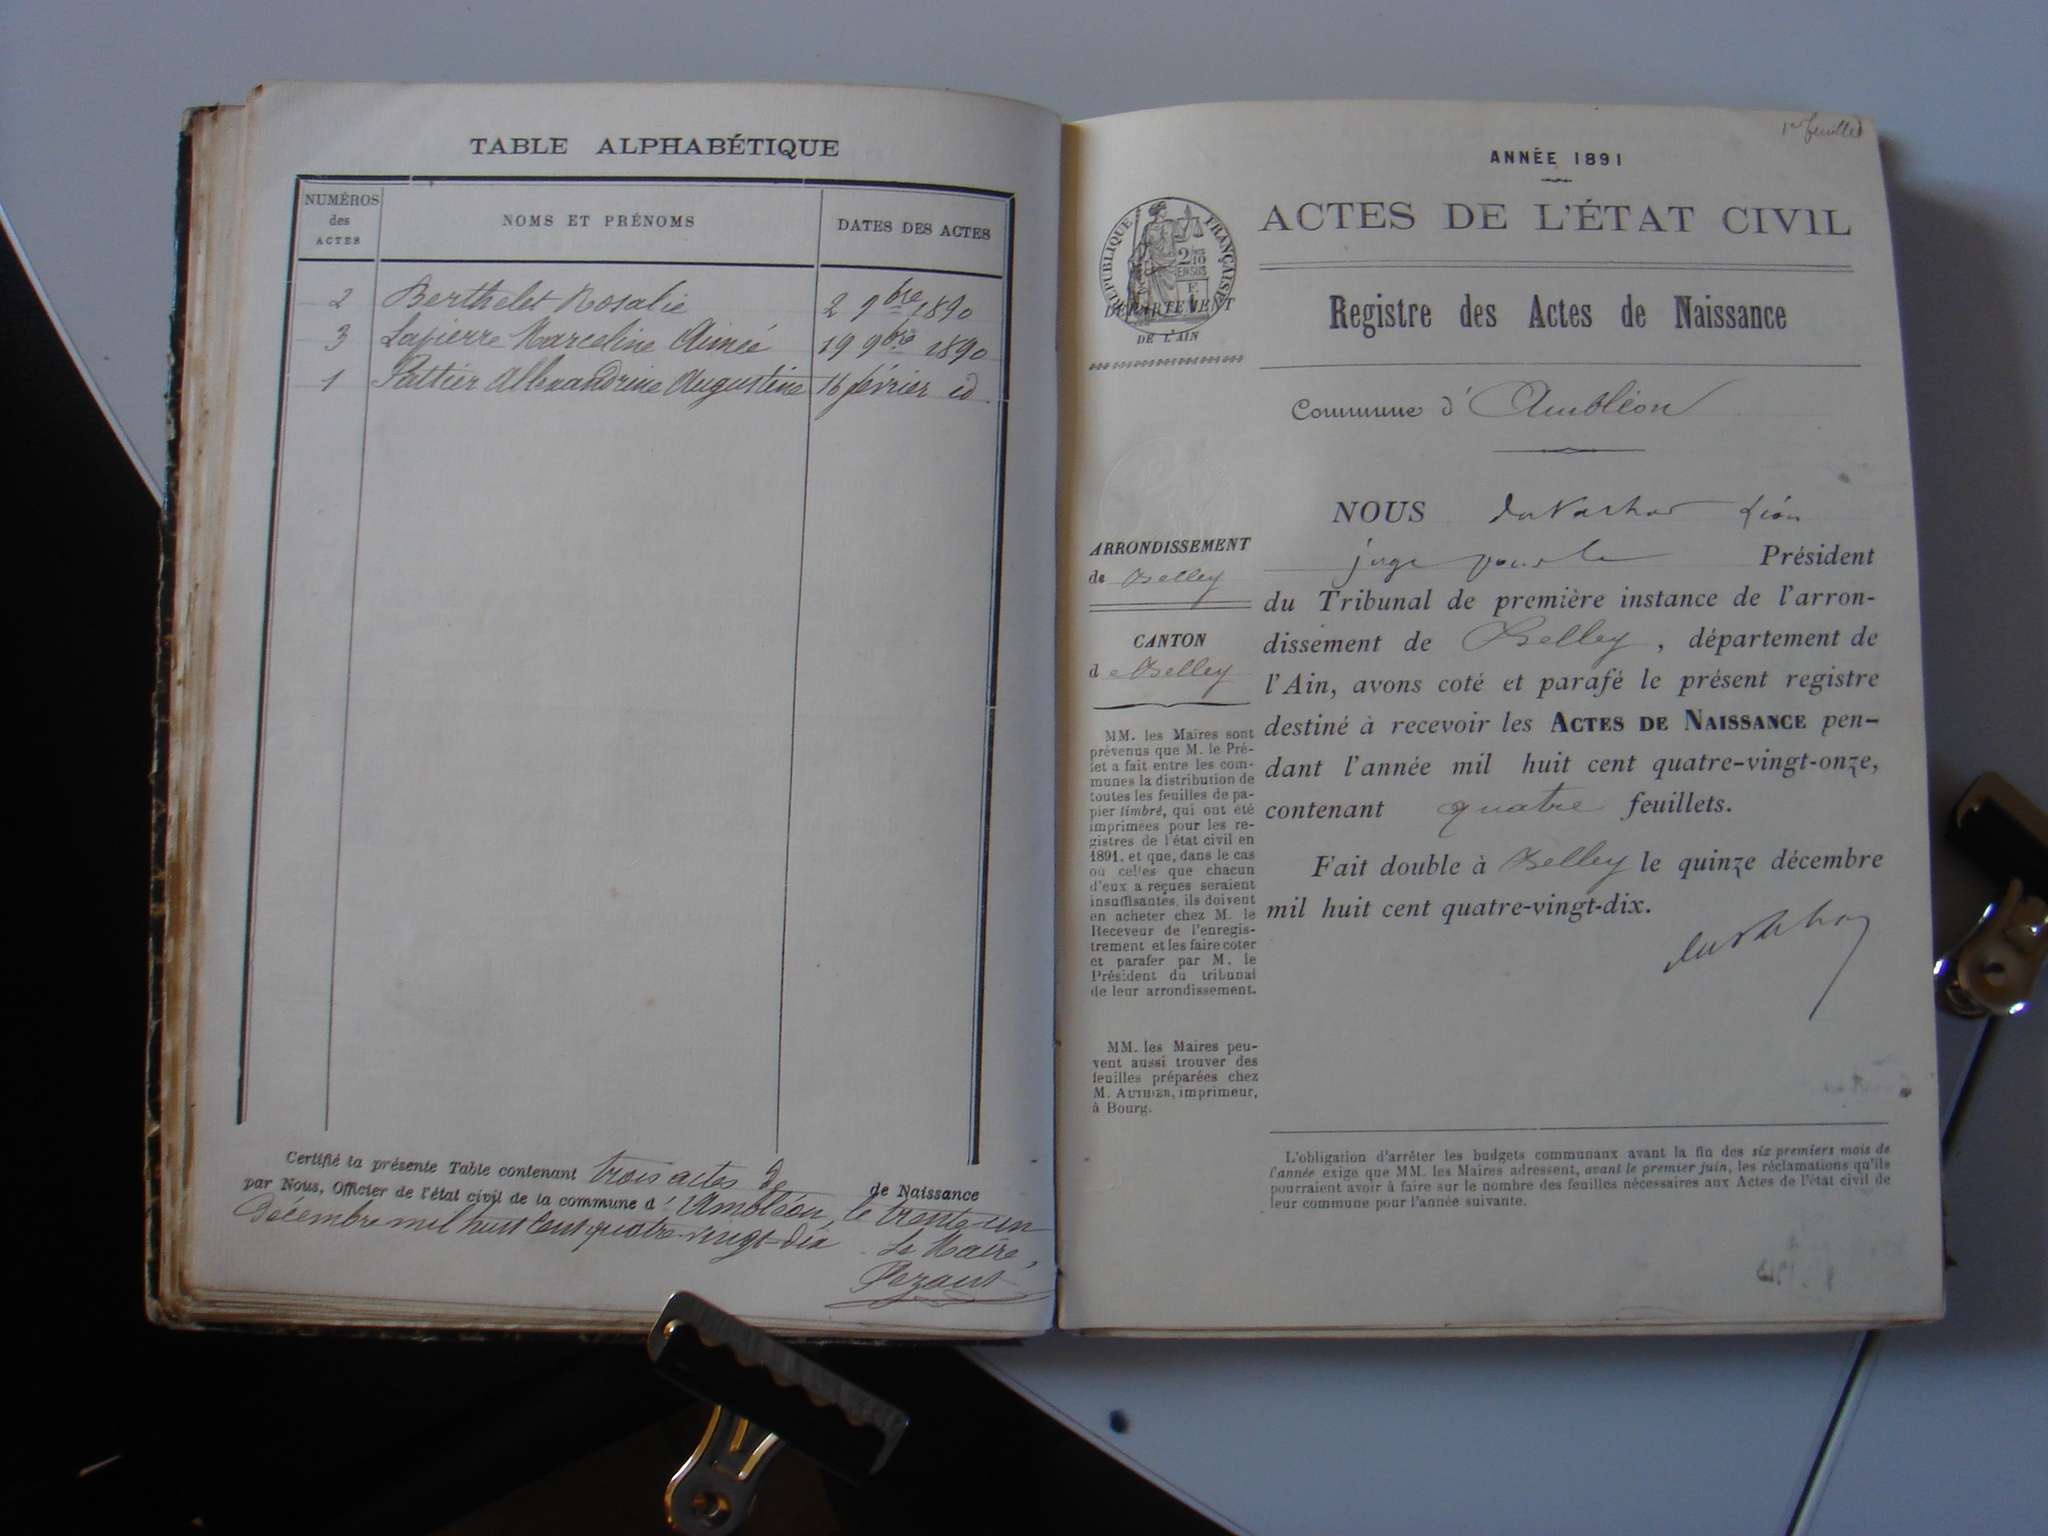 TABLE ALPHABÉTIQUE
NUMÉROS des ACTES
NOMS ET PRÉNOMS
DATES DES ACTES
2 Berthelet Rosalie 2 9bre 1890
3 Lapierre Marceline Aimée 19 9bre 1890
1 Pattier Allexandrine Augustine 16 février id
Certifié la présente Table contenant trois actes de de Naissance
par Nous, Officier de l'état civil de la commune d' Ambléon, le trente-un
Décembre mil huit cent quatre-vingt-dix Le Maire,
Pezant
1er feuillet
ANNÉE 1891
ACTES DE L'ÉTAT CIVIL
RÉPUBLIQUE FRANÇAISE
2/10 EN SUS
DÉPARTEMENT
DE L'AIN
Registre des Actes de Naissance
Commune d' Ambléon
ARRONDISSEMENT
de Belley
CANTON
de Belley
MM. les Maires sont
prévenus que M. le Pré-
fet a fait entre les com-
munes la distribution de
toutes les feuilles de pa-
pier timbré, qui ont été
imprimées pour les re-
gistres de l'état civil en
1891, et que, dans le cas
où celles que chacun
d'eux a reçues seraient
insuffisantes, ils doivent
en acheter chez M. le
Receveur de l'enregis-
trement et les faire coter
et parafer par M. le
Président du tribunal
de leur arrondissement.
MM. les Maires peu-
vent aussi trouver des
feuilles préparées chez
M. AUTHIER, imprimeur,
à Bourg.
NOUS Léon
juge pour le Président
du Tribunal de première instance de l'arron-
dissement de Belley, département de
l'Ain, avons coté et parafé le présent registre
destiné à recevoir les ACTES DE NAISSANCE pen-
dant l'année mil huit cent quatre-vingt-onze,
contenant quatre feuillets.
Fait double à Belley le quinze décembre
mil huit cent quatre-vingt-dix.
L'obligation d'arrêter les budgets communaux avant la fin des six premiers mois de
l'année exige que MM. les Maires adressent, avant le premier juin, les réclamations qu'ils
pourraient avoir à faire sur le nombre des feuilles nécessaires aux Actes de l'état civil de
leur commune pour l'année suivante.